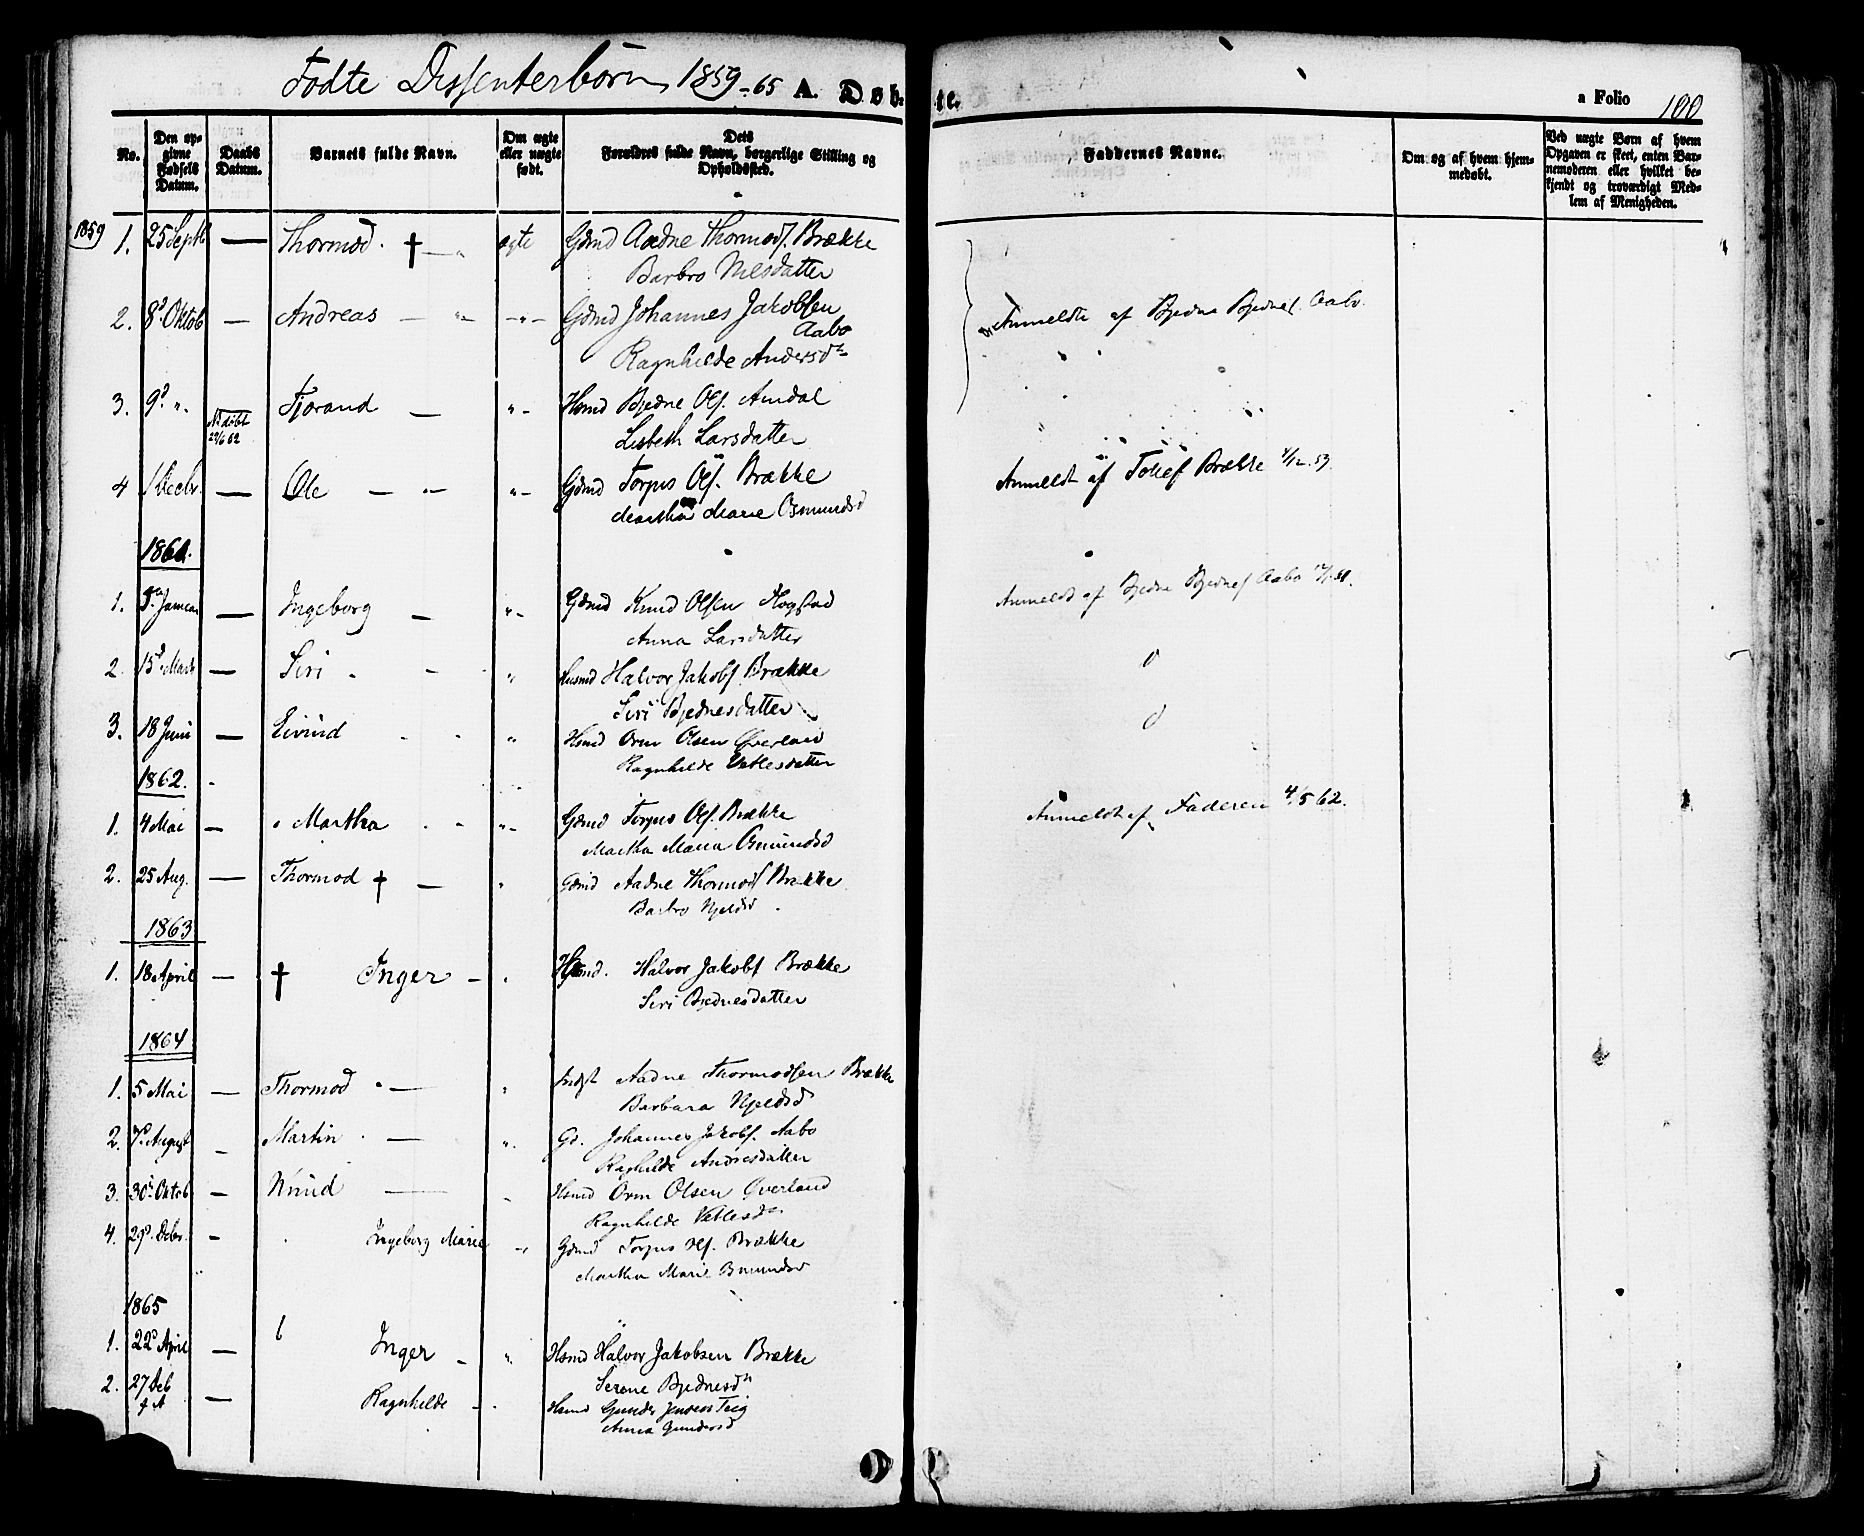 Fødte Dissenterbørn 1859-65 A. Døb-
te.
a Folio 100
No.
Den op-
givne
Fødsels
Datum.
Daabs
Datum.
Barnets fulde Navn.
Om ægte
eller uægte
født.
Dets
Forældres fulde Navn, borgerlige Stilling og
Opholdssted.
Faddernes Navne.
Om og af hvem hjem-
medøbt.
Ved uægte Børn af hvem
Opgaven er skeet, enten Bar-
nemoderen eller hvilket be-
kjendt og troværdigt Med-
lem af Menigheden.
1859
1. 25 Septb — Thormod. † — " ægte Gdmd Aadne Thormods. Brække
Barbro Nilsdatter
2. 8d Oktob — Andreas — " — -"- Gdmd Johannes Jakobsen
Aabo
Ragnhilde Andersd
Anmeldte af Bjedne Bjednes. Aabo.
3. 9d ". Fjorand — "- Hsmd Bjedne Ols. Amdal
døbt
22/6 62
Lisbeth Larsdatter
4 1 Decbr. — Ole — "- "- Gdmd Torjus Ols. Brække
Martha Marie Osmundsd
Anmeldt af Tollef Brække 4/12 59.
1861.
1. 5. Januar — Ingeborg — "- Gdmd Knud Olsen Hogstad
Anna Larsdatter
Anmeldt af Bjedne Bjednes Aabo
2. 15d Marts — Siri . - - " Husmd Halvor Jakobs. Brække
Siri Bjednesdatter
3. 18 Juni — Eivind . . " Hsmd Orm Olsen Øverland
Ragnhilde Vetlesdatter
1862.
1. 4 Mai — Martha . - "- Gdmd Torjus Ols. Brække
Martha Maria Osmundsd
Anmeldt af Faderen 4/5 62.
2. 25 Aug. — Thormod † — " Gdmd Aadne Thormods Brække
Barbro Njelsd
1863
1. 18 April — † Inger — " Hsmd. Halvor Jakobs Brække
Siri Bjednesdatter
1864
1. 5 Mai — Thormod "— " Indst Aadne Thormodsen Brække
Barbara Njelsd
2. 7d August — Martin . — ". Gd. Johannes Jakobs. Aabo
Raghilde Andresdatter
3. 30d Oktob — Knud — - Hsmd Orm Olsen Øverland
Ragnhilde Vetlesd
4. 29d Debr. — Ingeborg Marie -" Gdmd Torjus Ols. Brække
Martha Marie Osmundsd
1865
1. 22d April — Inger — ". Hsmd Halvor Jakobsen Brække
Serene Bjednesd
2. 27 Deb — Ragnhilde - . Hsmd Gunder Jensen Teig
Anna Gundersd